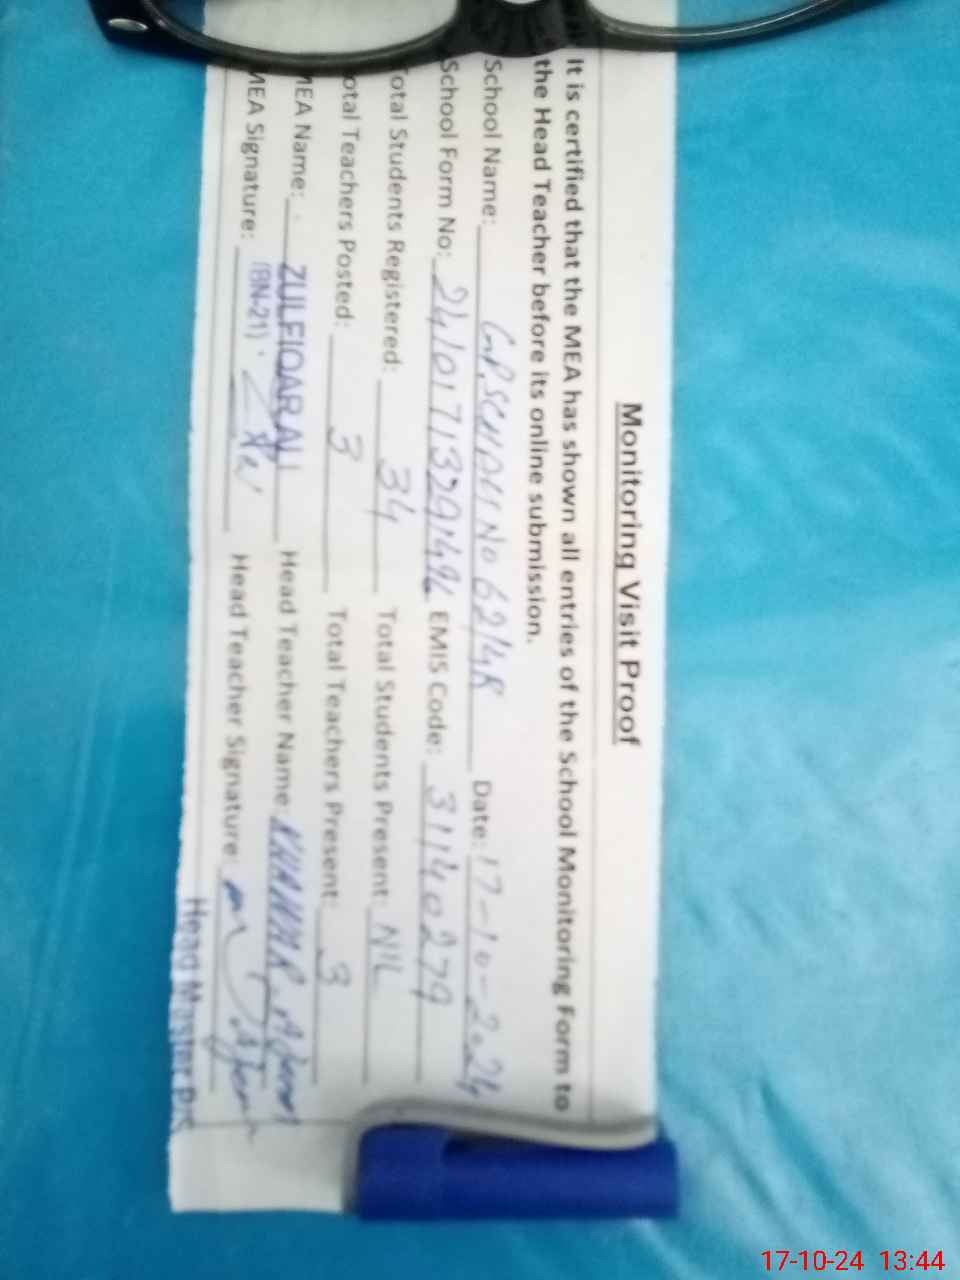 Monitoring Visit Proof
It is certified that the MEA has shown all entries of the School Monitoring Form to
the Head Teacher before its online submission.
School Name: G.P. School No 62/4R Date: 17-10-2024
School Form No: EMIS Code: 31140279
Total Students Registered: 34 Total Students Present: NIL
Total Teachers Posted: 3 Total Teachers Present: 3
MEA Name: ZULFIQAR ALI Head Teacher Name:
MEA Signature: (BN-21) Head Teacher Signature:
Head Master P/S
17-10-24 13:44